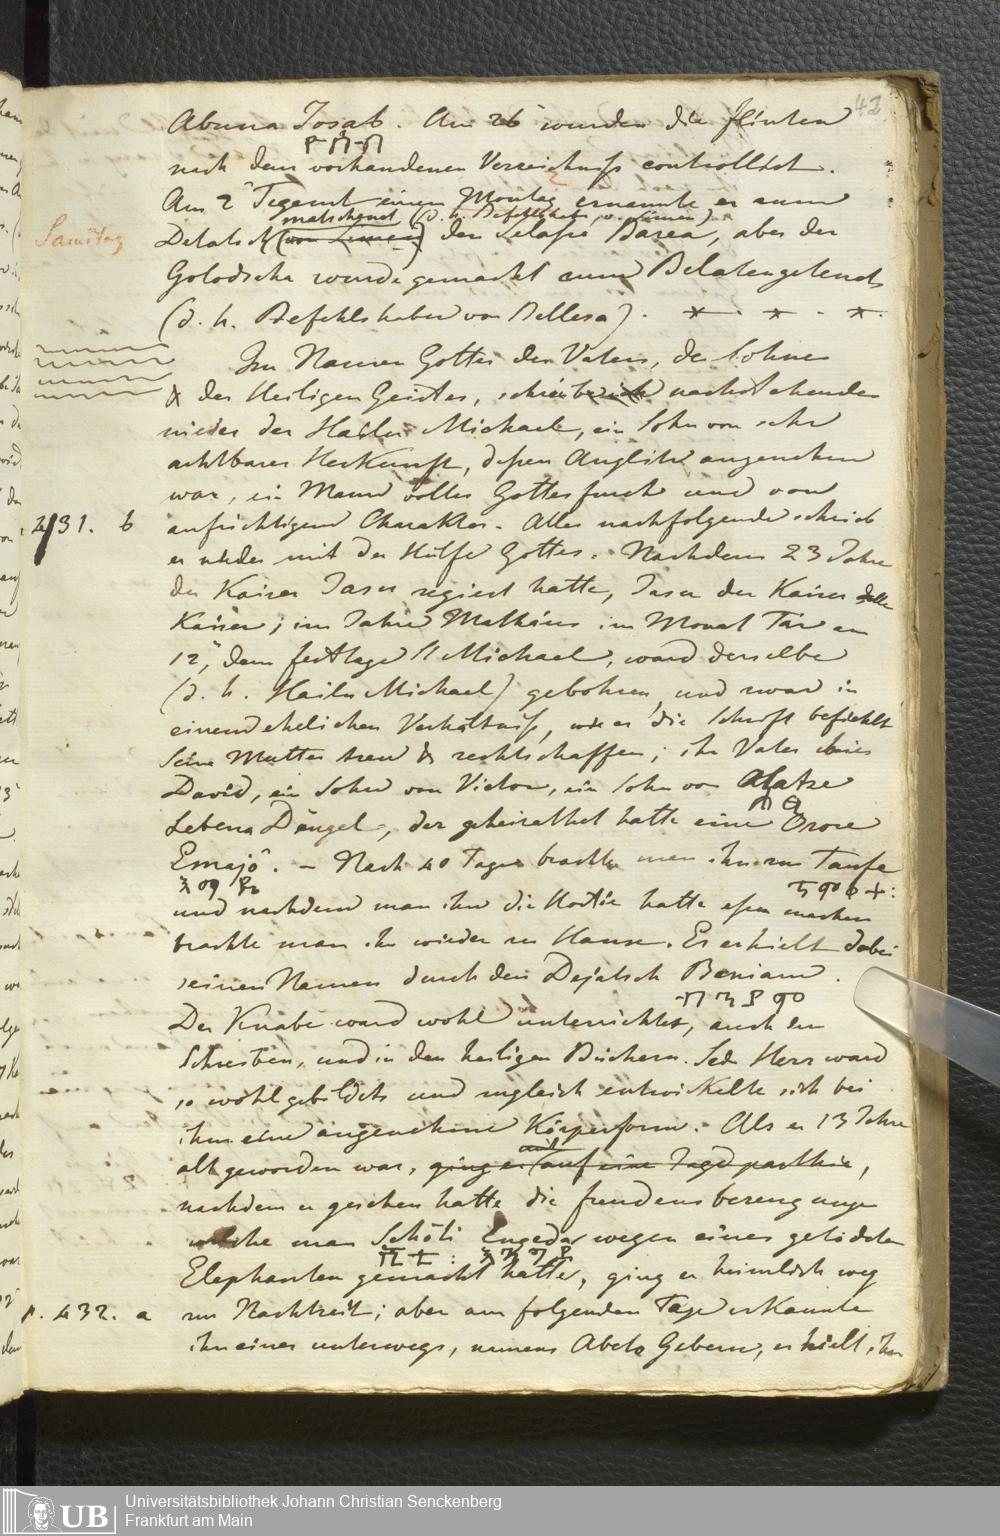 42
Abuna Josab. Am 26 wurden die flinten
ዮሳብ
nach dem vorhandenen Verzeichniss controllirt.
Am 2 Tegemt einen Montag ernannte er zum
matschenet (d. h. Befehlshaber v. Simen)
Samstag
Detatsch (von Simen) den Selasié Barea, aber der
Golodscha wurde gemacht zum Belatengetensch
(d. h. Befehlshaber von Bellesa). * . * . *.
Im Namen Gottes des Vaters, des Sohnes
& des Heiligen Geistes, schreibe ich nachstehendes
nieder der Hailu Michael, ein Sohn von sehr
achtbarer Herkunft, dessen Anglitz angenehm
war, ein Mann voller Gottesfurcht und von
431. b
aufrichtigem Charakter. Alles nachfolgende schrieb
er nieder mit der Hülfe Gottes. Nachdem 23 Jahre
der Kaiser Jasu regiert hatte, Jasu der Kaiser der
Kaiser; im Jahre Mathäus im Monat Tär am
12, dem festtage St Michael, ward derselbe
(d. h. Hailu Michael) gebohren, und zwar in
einem ehelichen Verhältniss, wie es die Schrift befiehlt
Seine Mutter treu & rechtschaffen; ihr Vater
David, ein Sohn von Victor, ein Sohn von Alatze
Lebena Dengel, der geheirathet hatte eine Orore
Emajo. – Nach 40 Tagen brachte man ihn zur Taufe
und nachdem man ihn die Hostie hatte essen machen
brachte man ihn wieder zu Hause. Er erhielt dabei
seinen Namen durch den Dejatsch Beniam.
ብንያም
Der Knabe ward wohl unterrichtet, auch im
Schreiben, und in den heiligen Büchern. Sein Herz ward
so wohl gebildet und zugleich entwickelte sich bei
ihm eine angenehme Körperform. Als er 13 Jahre
alt geworden war, ging er auf eine Jagdparthie,
nachdem er gesehen hatte die freudensbezeugungen
welche man Schöti Engedar wegen eines getödeten
Elephanten gemacht hatte, ging er heimlich weg
p. 432. a
zur Nachtzeit; aber am folgenden Tage erkannte
ihn einer unterwegs, namens Abeto Gebene, er hielt ihn
UB
Universitätsbibliothek Johann Christian Senckenberg
Frankfurt am Main